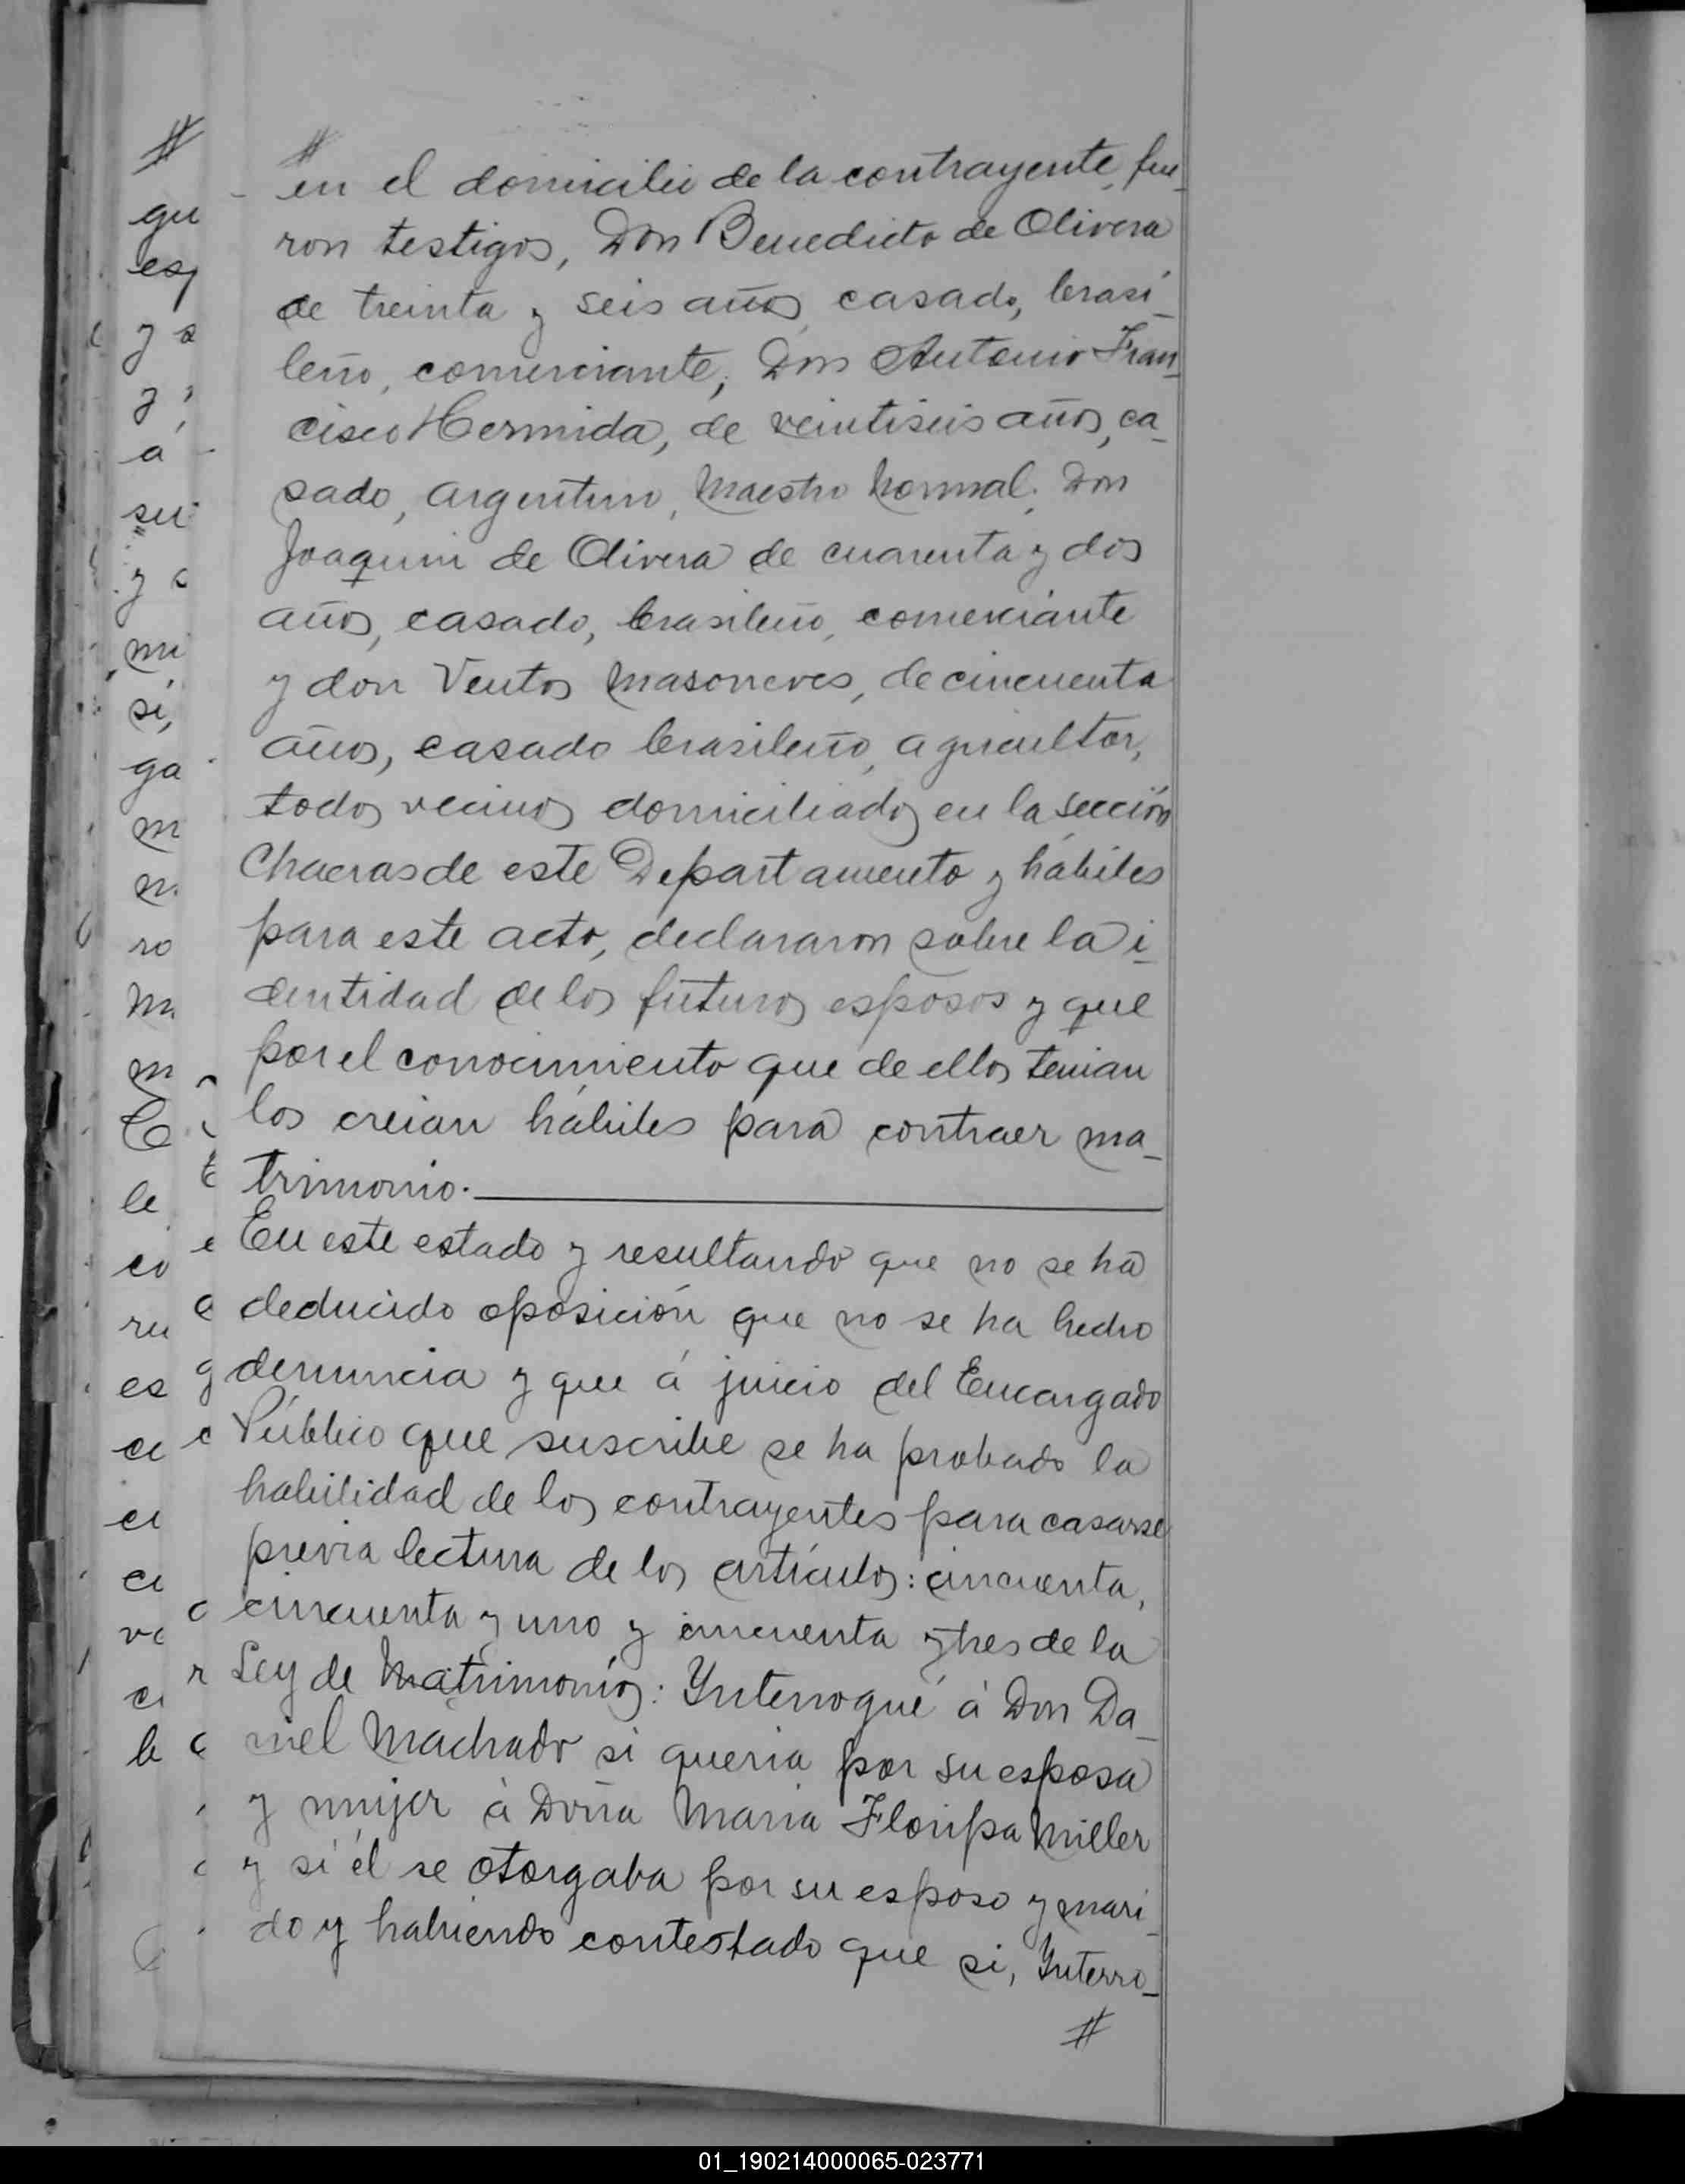 #
en el domicilio de la contrayente, fue_
ron testigos, Don Benedicto de Olivera
de treinta y seis años, casado, brasi_
leño, comerciante; Don Antonio Fran_
cisco Hermida, de veintiseis años, ca_
sado, argentino, Maestro Normal; Don
Joaquin de Olivera de cuarenta y dos
años, casado, brasileño, comerciante
y don Ventos Masoneves, de cincuenta
años, casado brasileño, agricultor,
todos vecinos domiciliados en la Sección
Chacras de este Departamento y hábiles
para este acto, declararon sobre la i_
dentidad de los futuros esposos y que
por el conocimiento que de ellos tenian
los creian hábiles para contraer ma_
trimonio.
En este estado y resultando que no se ha
deducido oposición que no se ha hecho
denuncia y que á juicio del Encargado
Público que suscribe se ha probado la
habilidad de los contrayentes para casarse
previa lectura de los artículos: cincuenta,
cincuenta y uno y cincuenta y tres de la
Ley de Matrimonios: Ynterrogué á Don Da_
niel Machado si queria por su esposa
y mujer á Doña Maria Floripa Miller
y si él se otorgaba por su esposo y mari_
do y habiendo contestado que si, Ynterro_
#
#
gu
esp
y a
y
á
su
y
mi
si,
ga
m
n
ro
m
m
C
le
co
ru
es
ci
ci
ci
vo
ci
b
01_190214000065-023771